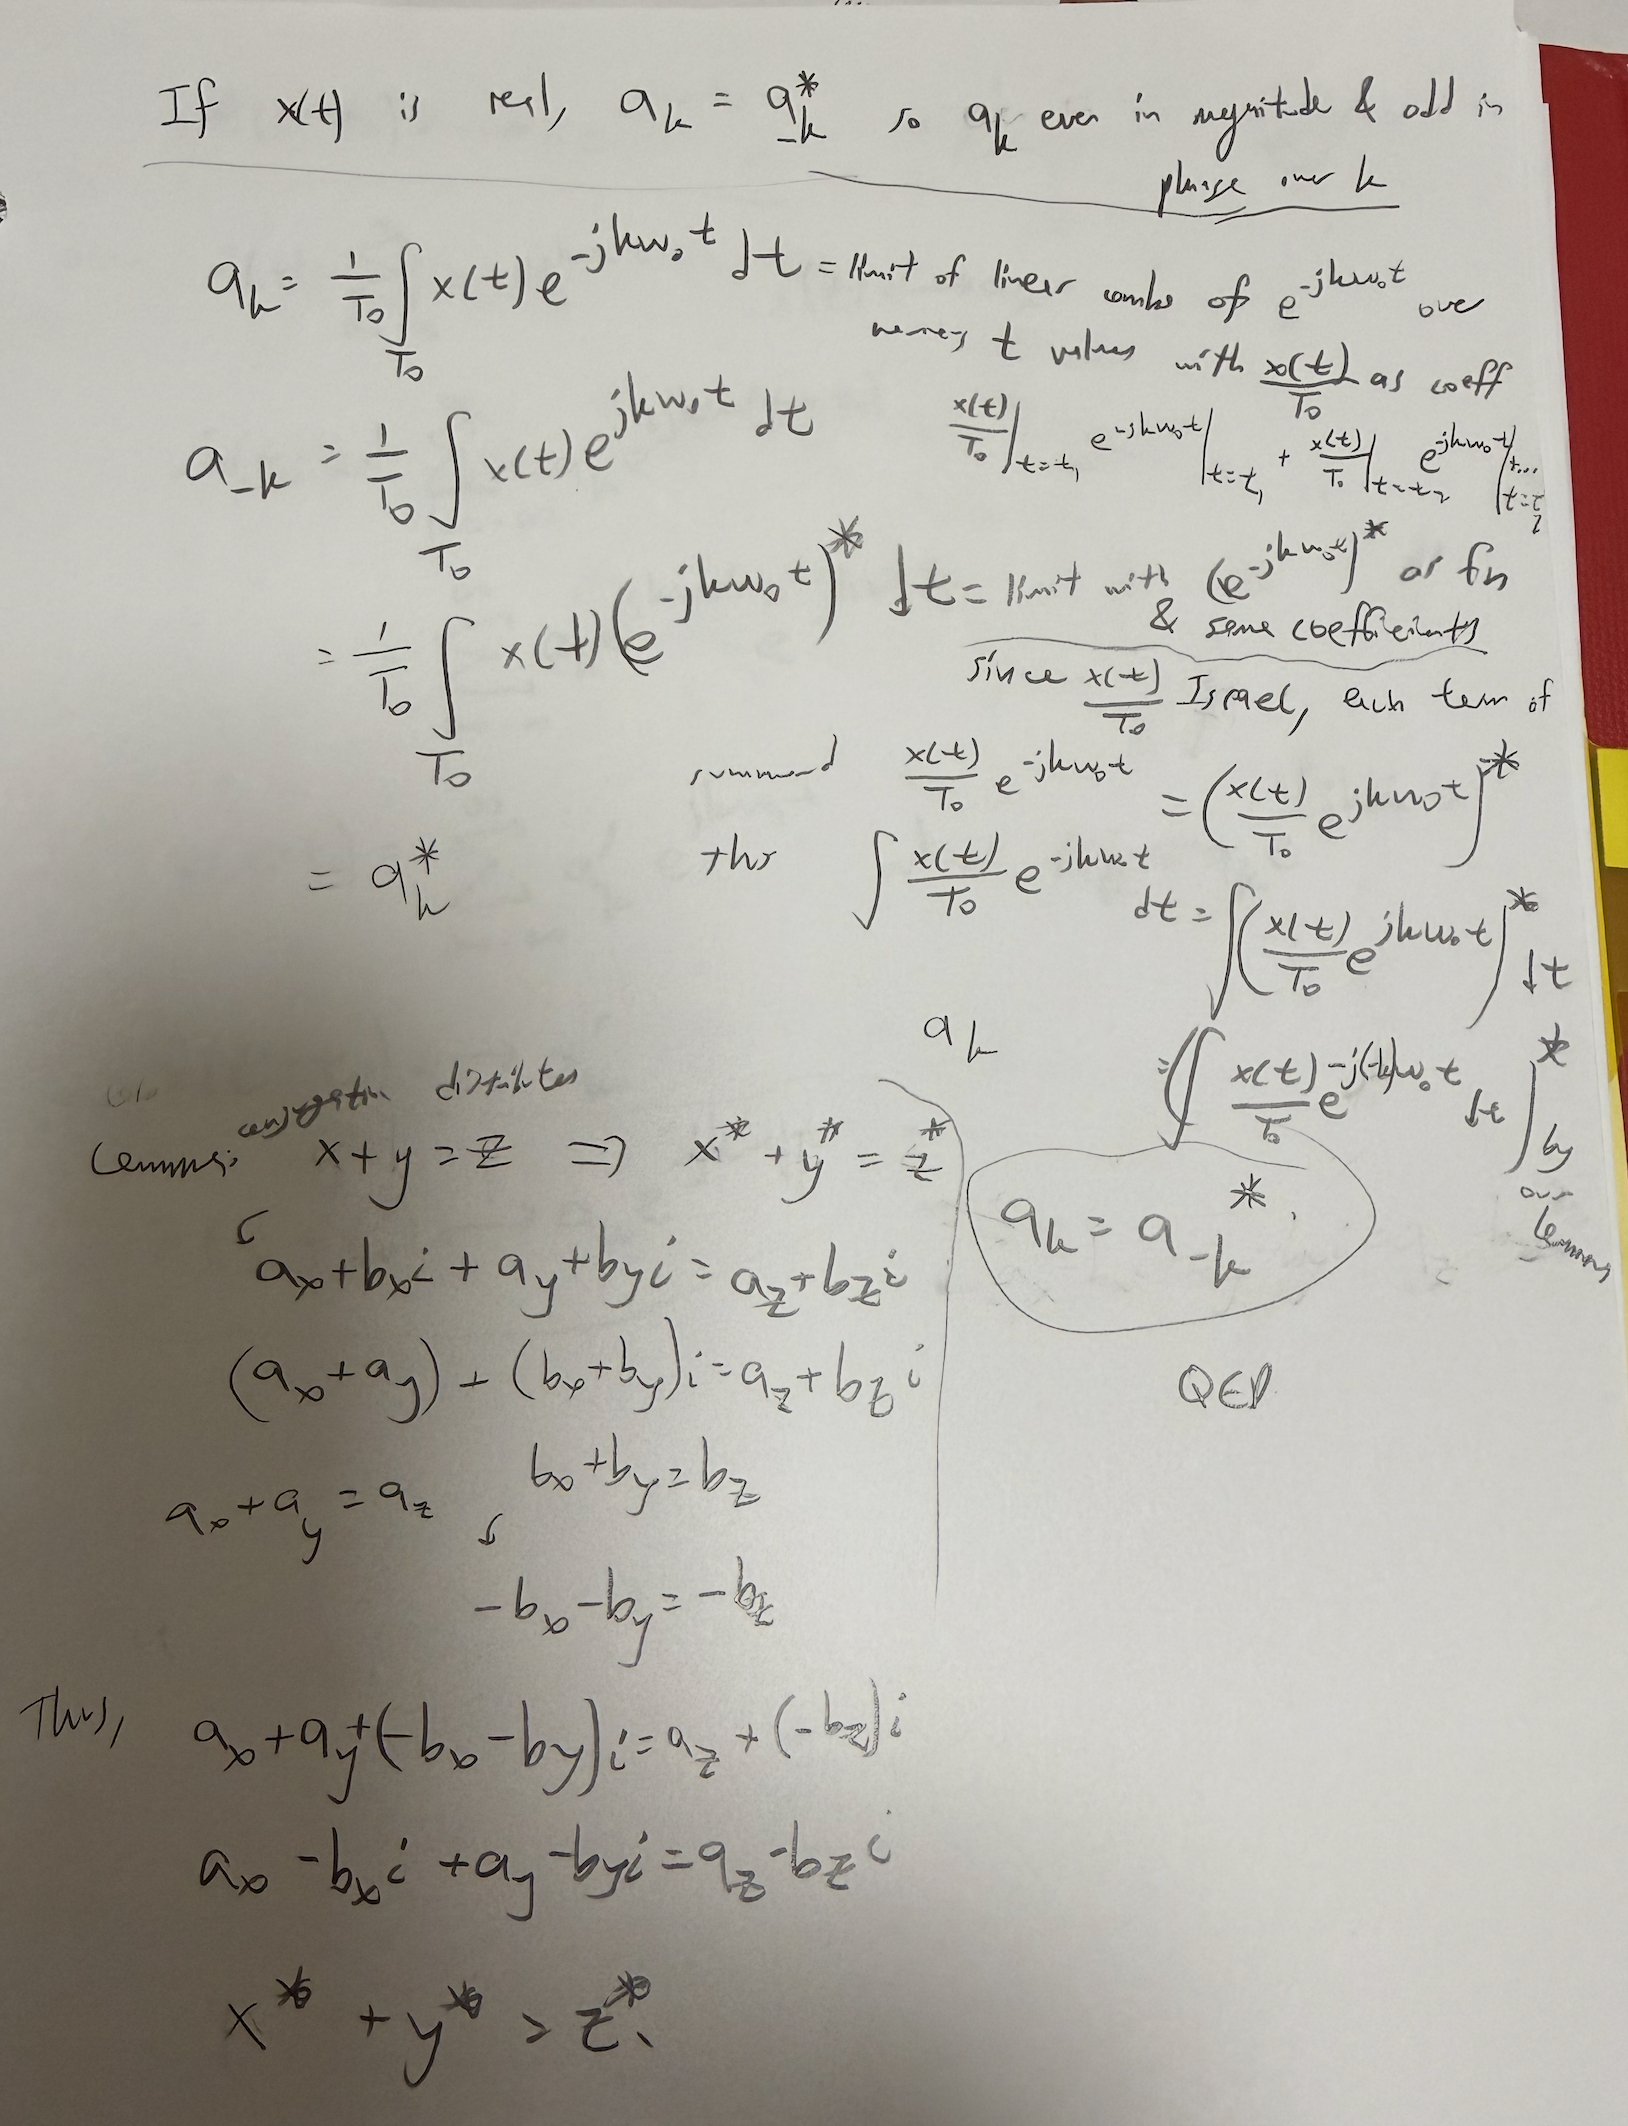 If x(t) is real, a_k = a_{-k}^* so a_k even in magnitude & odd in
phase over k
a_k = 1/T₀ ∫_{T₀} x(t) e^{-jkω₀t} dt = limit of linear combo of e^{-jkω₀t} over
many t values with x(t)/T₀ as coeff
a_{-k} = 1/T₀ ∫_{T₀} x(t) e^{jkω₀t} dt
x(t)/T₀ |_{t=t₁} e^{-jkω₀t} |_{t=t₁} + x(t)/T₀ |_{t=t₂} e^{-jkω₀t} |_{t=t₂} + ...
= 1/T₀ ∫_{T₀} x(t) (e^{-jkω₀t})^* dt = limit with (e^{-jkω₀t})^* as fn
& same coefficients
since x(t)/T₀ Is real, each term of
summand x(t)/T₀ e^{-jkω₀t} = (x(t)/T₀ e^{jkω₀t})^*
= a_k^*
thus ∫ x(t)/T₀ e^{-jkω₀t} dt = ∫ (x(t)/T₀ e^{jkω₀t})^* dt
a_k = (∫ x(t)/T₀ e^{-j(-k)ω₀t} dt)^* by
our
lemma
a_k = a_{-k}^*.
QED
conjugation distributes
Lemma: x + y = z ⇒ x^* + y^* = z^*
a_x + b_x i + a_y + b_y i = a_z + b_z i
(a_x + a_y) + (b_x + b_y) i = a_z + b_z i
a_x + a_y = a_z
b_x + b_y = b_z
-b_x - b_y = -b_z
Thus, a_x + a_y + (-b_x - b_y) i = a_z + (-b_z) i
a_x - b_x i + a_y - b_y i = a_z - b_z i
x^* + y^* = z^*.